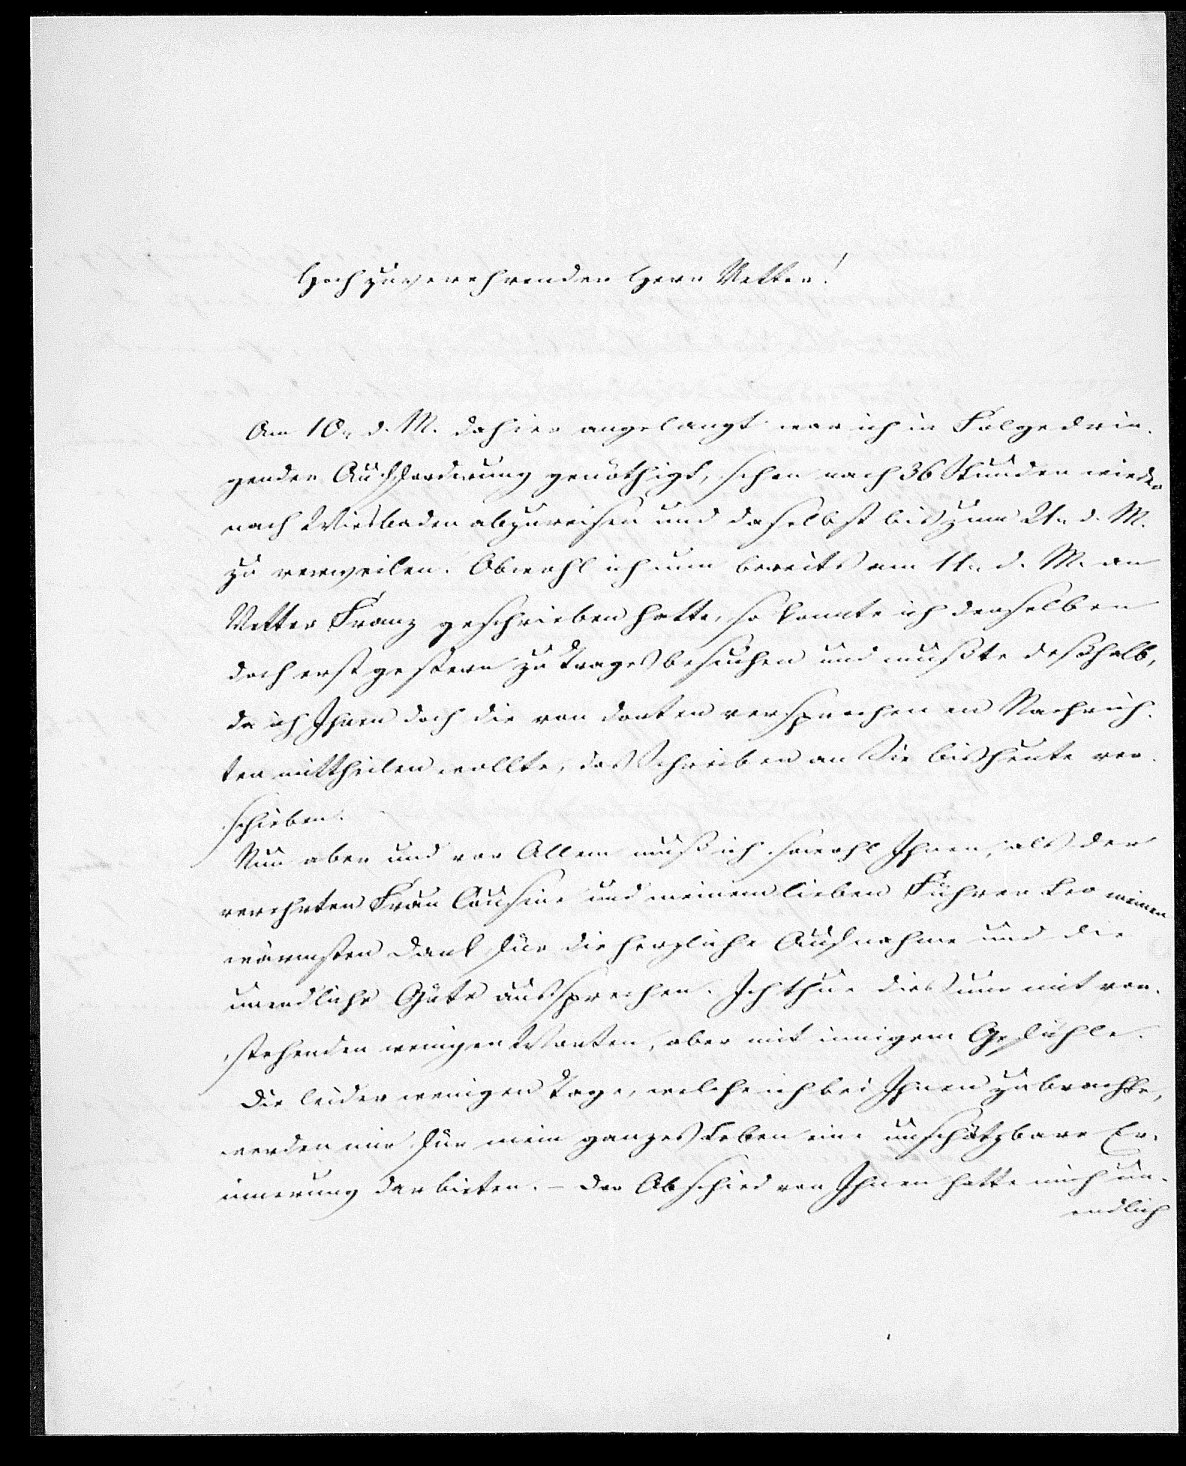 Hochzuverehrender Herr Vetter!
Am 10. d. M. dahier angelangt war ich in Folge drin-
gender Aufforderung genöthigt, schon nach 36 Stunden wieder
nach Wiesbaden abzureisen und daselbst bis zum 21. d. M.
zu verweilen. Obwohl ich nun bereits am 11. d. M. an
Vetter Franz geschrieben hatte, so konnte ich denselben
doch erst gestern zu Trages besuchen und mußte deßhalb,
da ich Ihnen doch die von dorten versprochenen Nachrich-
ten mittheilen wollte, das Schreiben an Sie bis heute ver-
schieben.
Nun aber und vor Allem muß ich sowohl Ihnen, als der
verehrten Frau Cousine und meinem lieben Führer Leo meinen
wärmsten Dank für die herzliche Aufnahme und die
unendliche Güte aussprechen. Ich thue dies nur mit vor-
stehenden wenigen Worten, aber mit innigem Gefühle.
Die leider wenigen Tage, welche ich bei Ihnen zubrachte,
werden mir für mein ganzes Leben eine unschätzbare Er-
innerung darbieten. – Der Abschied von Ihnen hatte mich un-
endlich